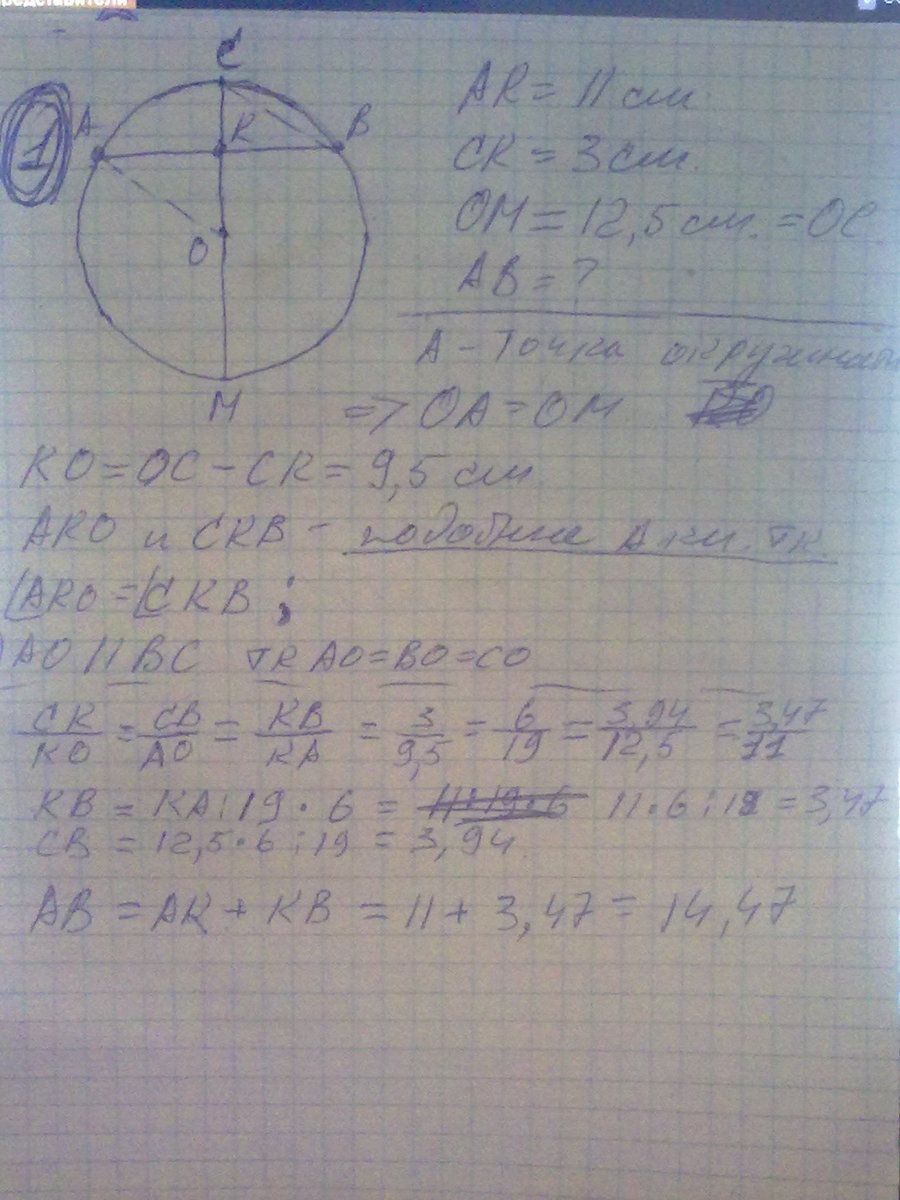 представители
1
C
A
K
B
O
M
AK = 11 см.
CK = 3 см.
OM = 12,5 см. = OC
AB = ?
A - точка окружност
=> OA = OM
KO = OC - CK = 9,5 см
AKO и CKB - подобные Δ-ки. тк.
∠AKO = ∠CKB ;
AO || BC тк AO = BO = CO
CK/KO = CB/AO = KB/KA = 3/9,5 = 6/19 = 3,94/12,5 = 3,47/11
KB = KA : 19 · 6 = 11 · 6 : 19 = 3,47
CB = 12,5 · 6 : 19 = 3,94
AB = AK + KB = 11 + 3,47 = 14,47